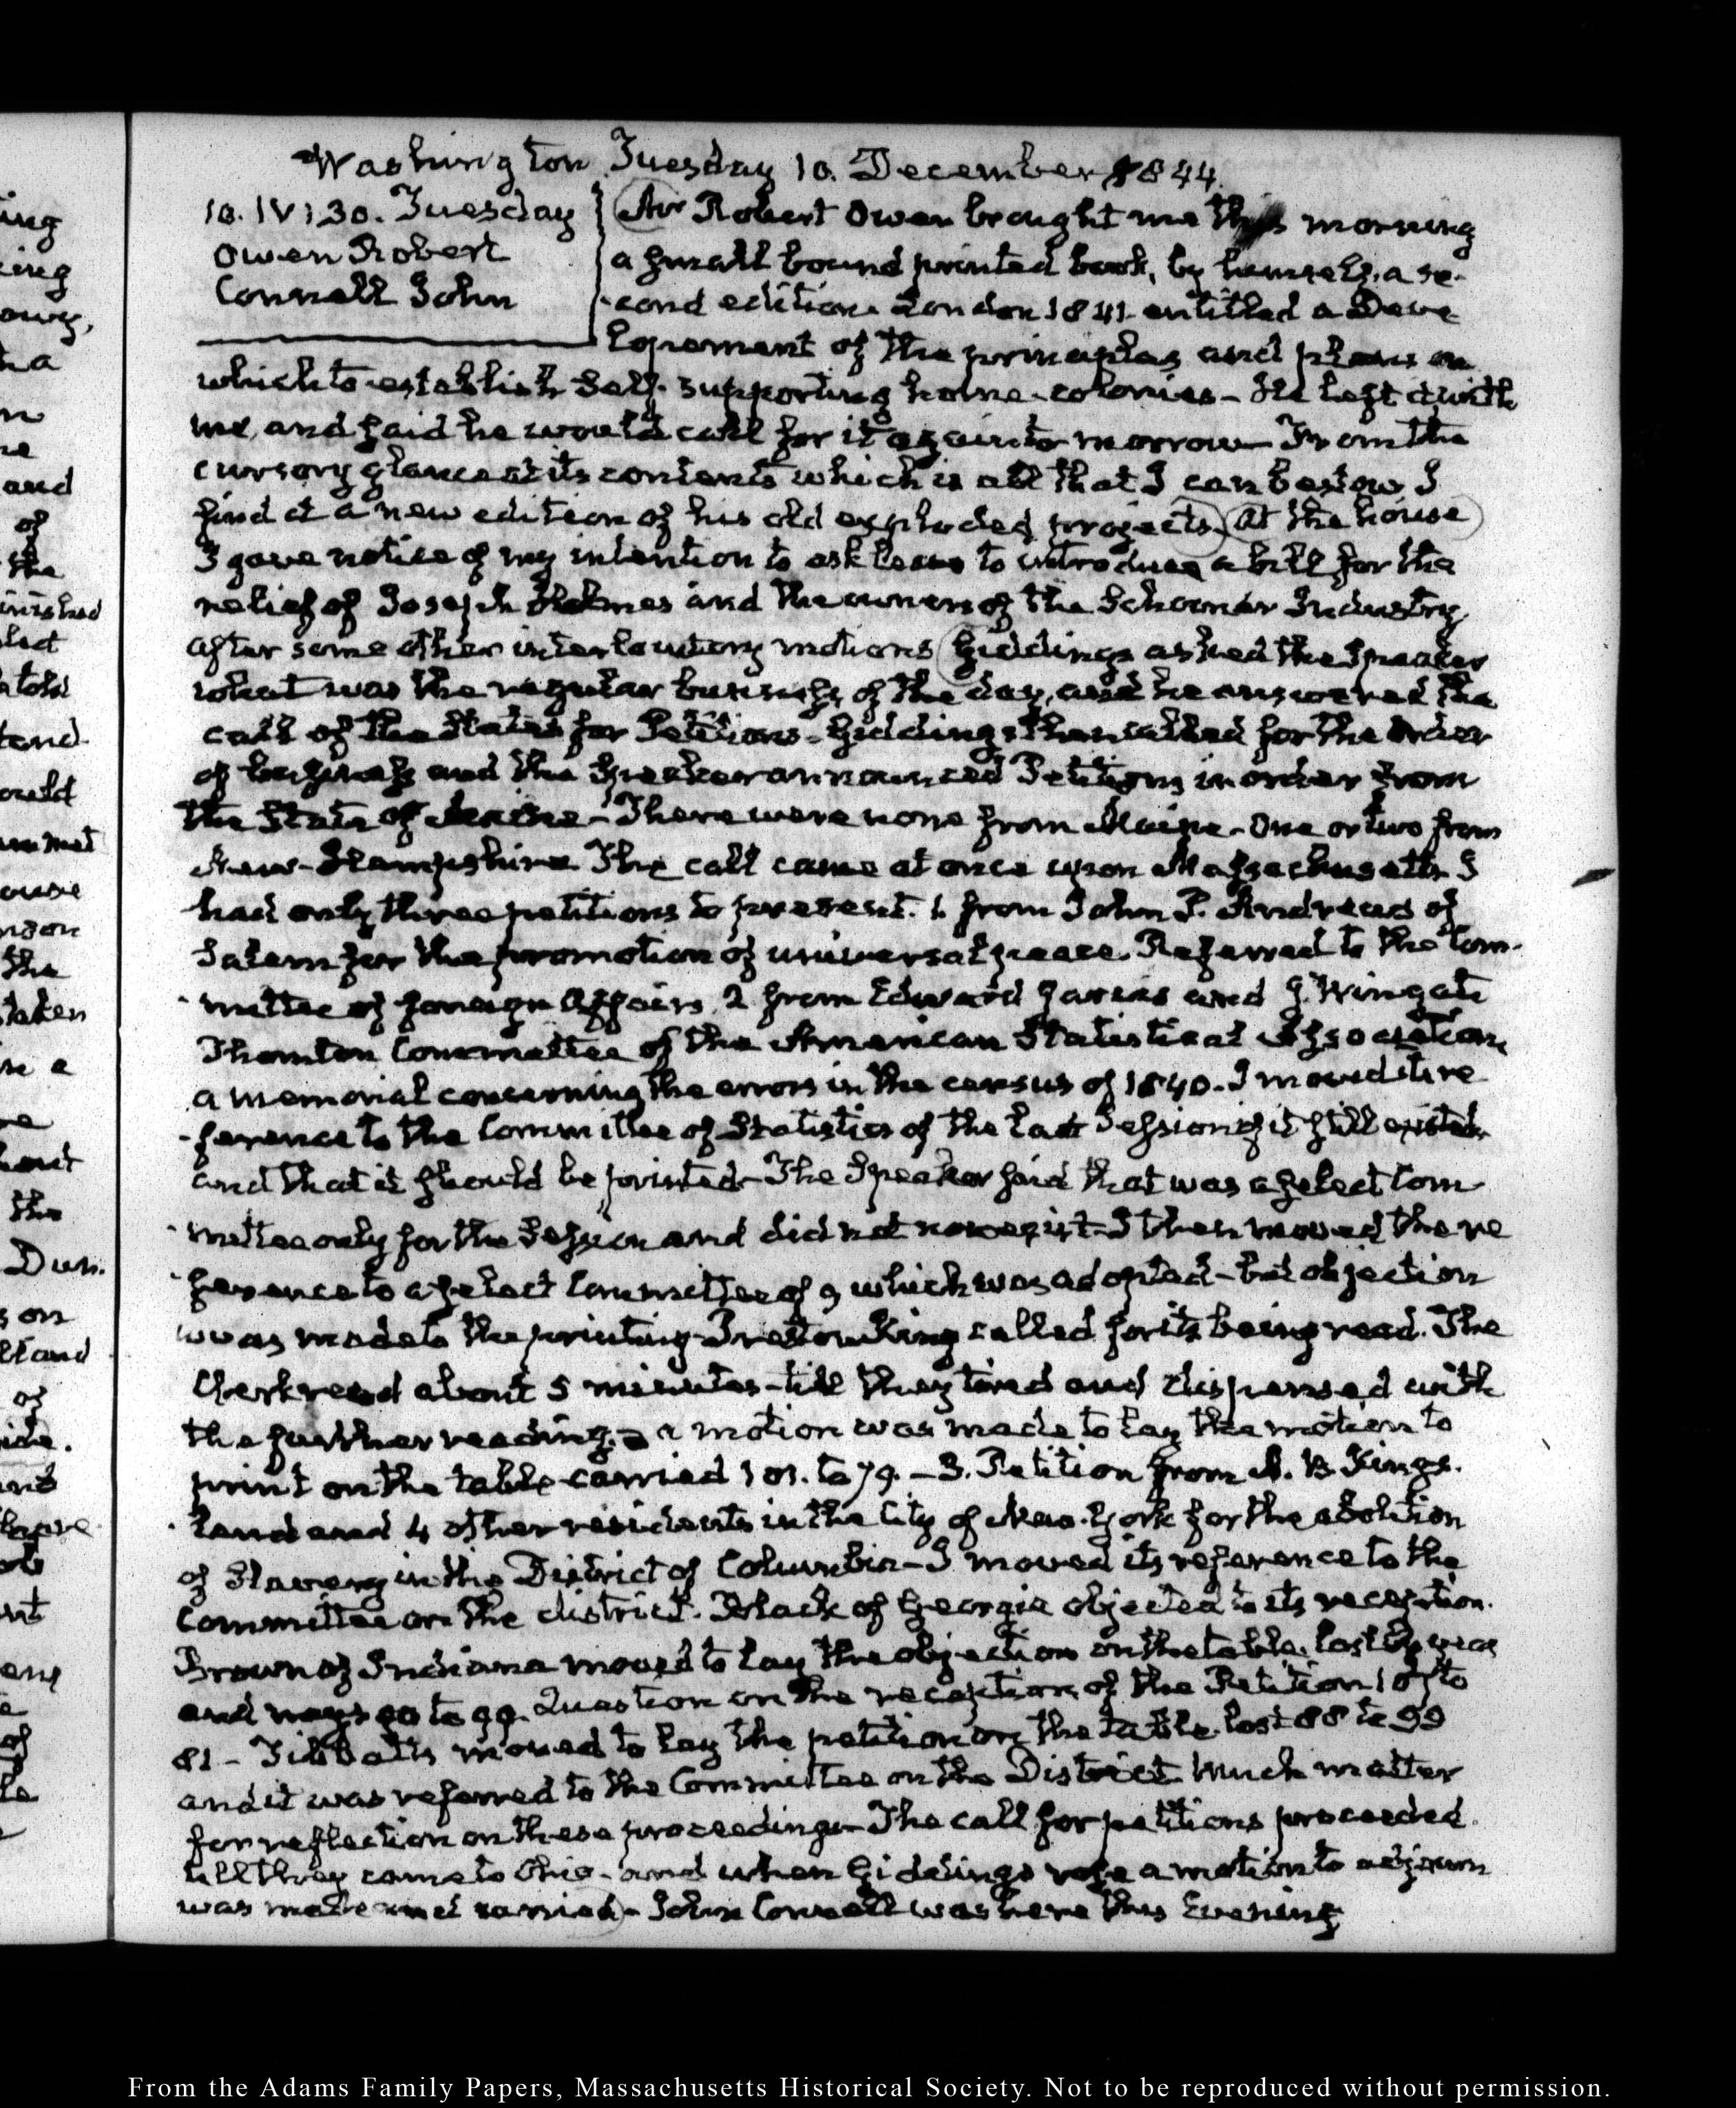 Washington Tuesday 10. December 1844.
10. IV:30. Tuesday
Owen Robert
Connell John
Mr Robert Owen brought me this morning
a small bound printed book, by himself, a se-
-cond edition London 1841 entitled a Deve
lopement of the principles and plans on
which to establish self-supporting home-colonies - He left it with
me, and said he would call for it again to morrow - From the
cursory glance at its contents which is all that I can bestow I
find it a new edition of his old exploded projects. At the house
I gave notice of my intention to ask leave to introduce a bill for the
relief of Joseph Holmes and the owners of the Schooner Industry,
after some other interlocutory motions Giddings asked the Speaker
what was the regular business of the day, and he answered the
call of the States for Petitions - Giddings then called for the order
of business and the Speaker announced Petitions in order from
the State of Maine - There were none from Maine - One or two from
New-Hampshire The call came at once upon Massachusetts I
had only three petitions to present. 1. from John P. Andrews of
Salem for the promotion of universal peace. Referred to the Com-
-mittee of foreign Affairs. 2 from Edward Jarvis and J. Wingate
Thornton Committee of the American Statistical Association,
a memorial concerning the errors in the census of 1840 - I moved its re
-ference to the Committee of Statistics of the last Session if it still existed
and that it should be printed - The Speaker said that was a select Com
-mittee only for the Session and did not now exist - I then moved the re
-ference to a select Committee of 9 which was adopted - but objection
was made to the printing - Preston King called for its being read. The
Clerk read about 5 minutes - till they tired and dispensed with
the further reading. a motion was made to lay the motion to
print on the table - carried 101. to 79. - 3. Petition from B. Kings-
-land and 4 other residents in the City of New-York for the abolition
of Slavery in the District of Columbia - I moved its reference to the
Committee on the district. Black of Georgia objected to its reception.
Brown of Indiana moved to lay the objection on the table. lost by yeas
and nays to 99. Question on the reception of the Petition 107 to
81 - Tibbatts moved to lay the petition on the table. lost 88 to 99
and it was referred to the Committee on the District. Much matter
for reflection on these proceedings - The call for petitions proceeded
till they came to Ohio - and when Giddings rose a motion to adjourn
was made and carried - John Connell was here this Evening
ing
ing
owy,
ha
n
ne
and
of
the
inished
lect
told
tend
ould
ouse
nson
the
taken
in a
re
hout
the
Dun.
s on
and
of
ide.
and
have
ob
nt
eng
e
of
le
From the Adams Family Papers, Massachusetts Historical Society. Not to be reproduced without permission.